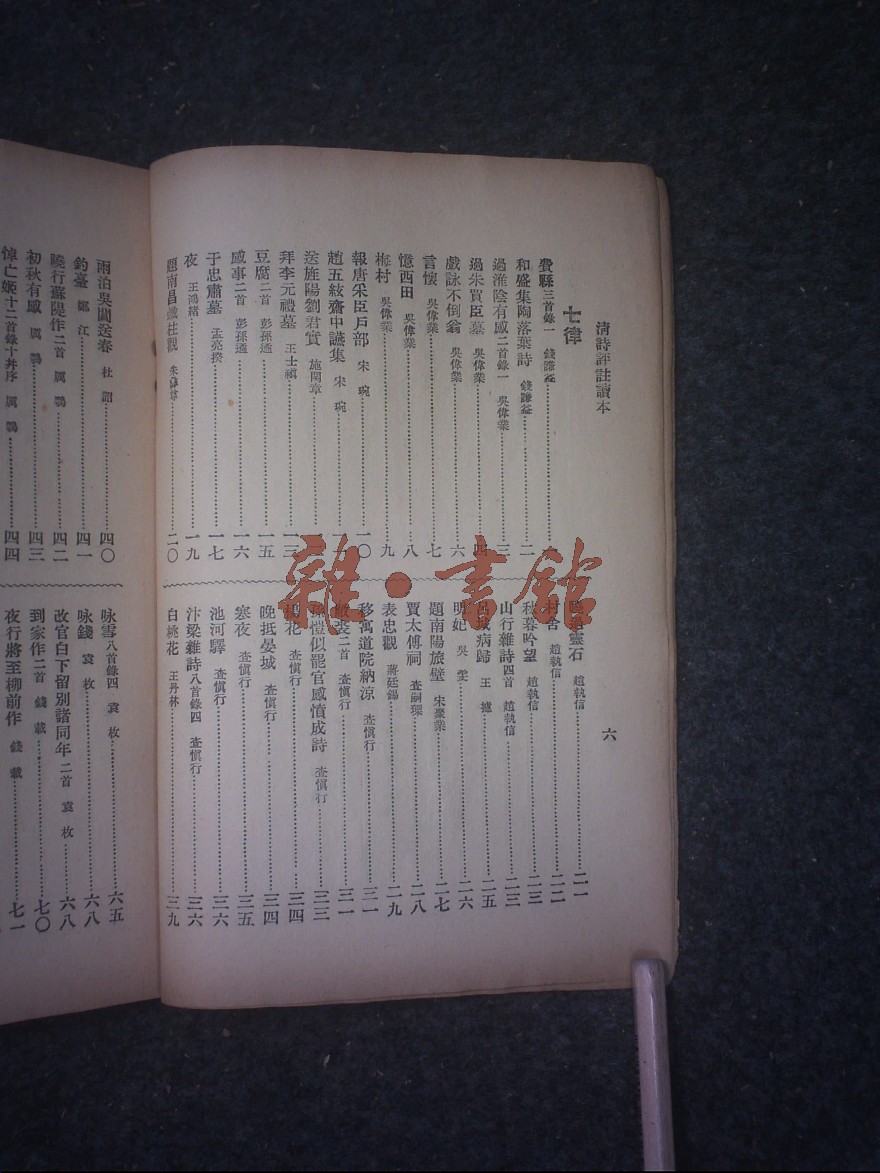 清詩評註讀本
六
七律
費縣三首錄一 錢謙益
和盛集陶落葉詩 錢謙益 二
過淮陰有感二首錄一 吳偉業 三
過朱買臣墓 吳偉業 四
戲詠不倒翁 吳偉業 六
言懷 吳偉業 七
憶西田 吳偉業 八
梅村 吳偉業 九
報唐采臣戶部 宋琬 一〇
趙五絃齋中讌集 宋琬
送旌陽劉君實 施閏章
拜李元禮墓 王士禛 一三
豆腐二首 彭孫遹 一五
感事二首 彭孫遹 一六
于忠肅墓 孟亮揆 一七
夜 王鴻緒 一九
題南昌鐵柱觀 朱彝尊 二〇
靈石 趙執信 二一
村舍 趙執信 二二
秋暮吟望 趙執信 二二
山行雜詩四首 趙執信 二三
城病歸 王攄 二五
明妃 吳雯 二六
題南陽旅壁 宋聚業 二七
賈太傅祠 查嗣瑮 二八
表忠觀 蔣廷錫 二九
移寓道院納涼 查慎行 三一
敝裘二首 查慎行 三一
愷似罷官感憤成詩 查慎行 三三
花 查慎行 三四
晚抵晏城 查慎行 三四
寒夜 查慎行 三五
池河驛 查慎行 三六
汴梁雜詩八首錄四 查慎行 三六
白桃花 王丹林 三九
雨泊吳閶送春 杜詔 四〇
釣臺 鄭江 四一
曉行蘇隄作二首 厲鶚 四二
初秋有感 厲鶚 四三
悼亡姬十二首錄十并序 厲鶚 四四
咏雪八首錄四 袁枚 六五
咏錢 袁枚 六八
改官白下留別諸同年二首 袁枚 六八
到家作二首 錢載 七〇
夜行將至柳前作 錢載 七一
雜·書館